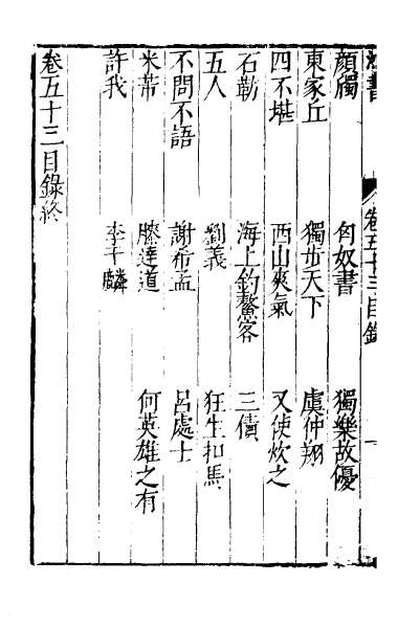 卷五十三目錄
顔斶　匈奴書　獨樂故優
東家丘　獨步天下　虞仲翔
四不堪　西山爽氣　又使炊之
石勒　海上釣鰲客　三債
五人　劉義　狂生扣馬
不問不語　謝希孟　呂處士
米芾　滕達道　何英雄之有
許我　李于麟
卷五十三目錄終